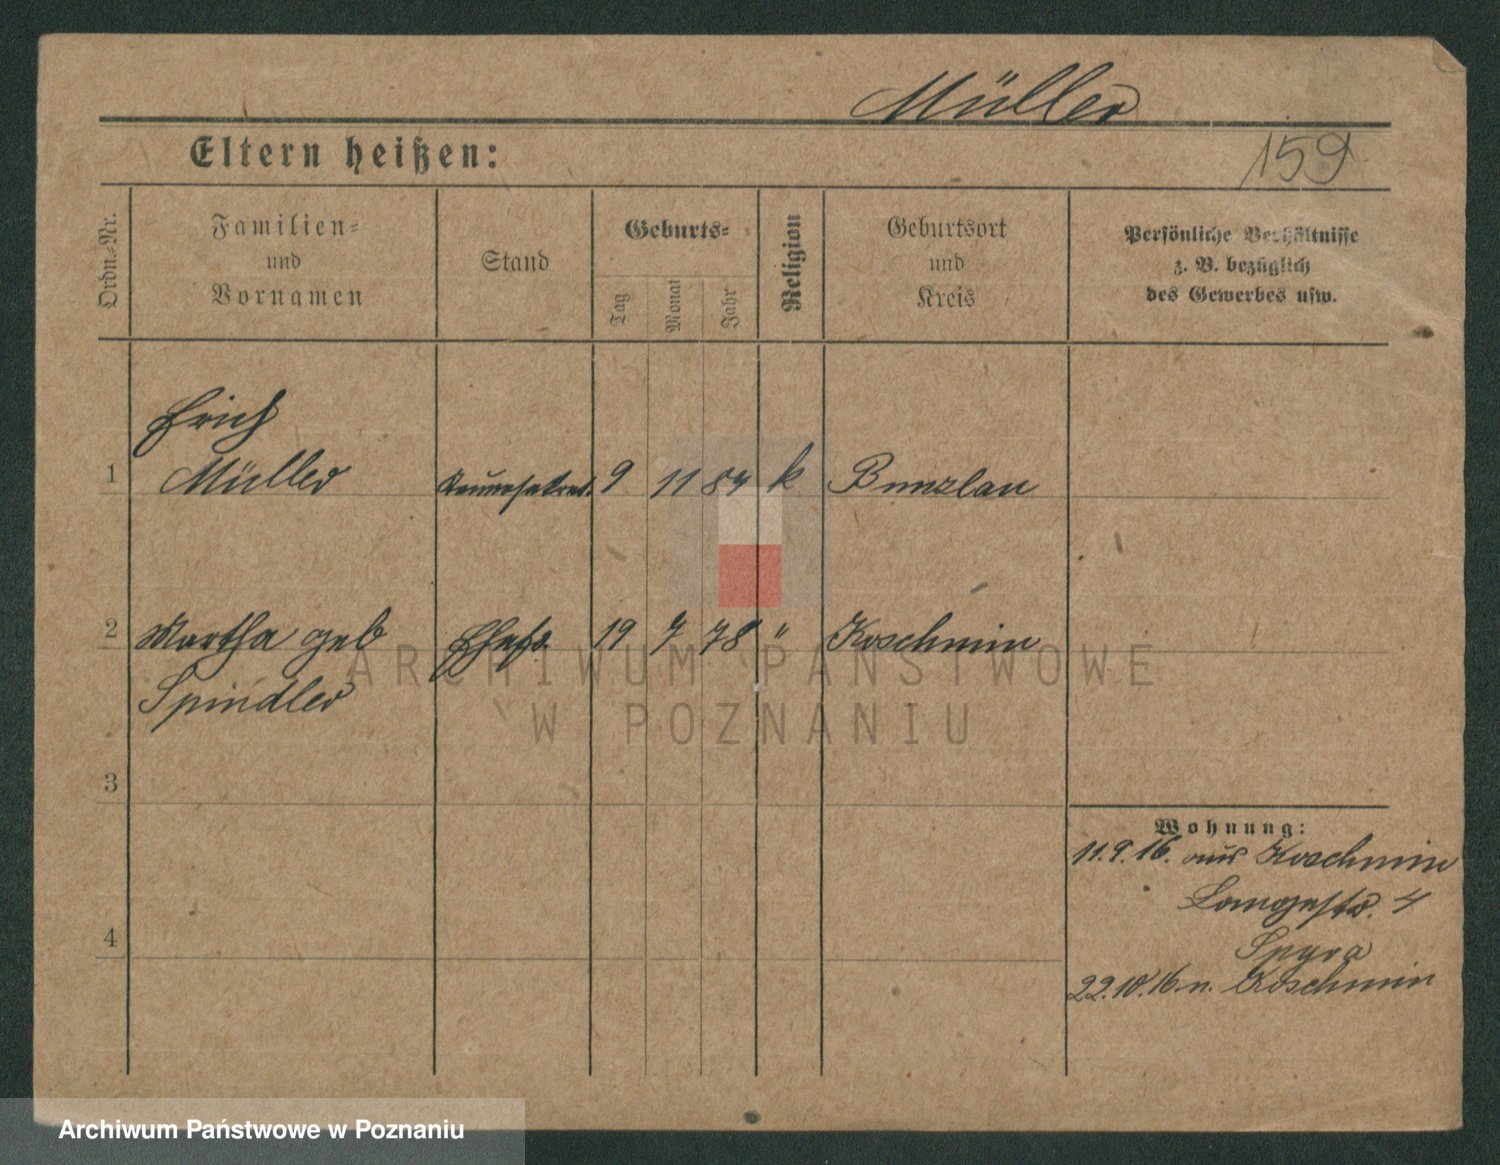 Müller
Eltern heißen:
159
Ordn.-Nr.
Familien-
und
Vornamen
Stand
Geburts-
Tag
Monat
Jahr
Religion
Geburtsort
und
Kreis
Persönliche Verhältnisse
z. B. bezüglich
des Gewerbes usw.
Erich
1 Müller 9 11 84 k Bunzlau
2 Martha geb Ehefr. 19 7 78 " Koschmin
Spindler
ARCHIWUM PAŃSTWOWE
W POZNANIU
3
Wohnung:
11.9.16. aus Koschmin
Langestr. 4
4
Spyra
22.10.16. n. Koschmin
Archiwum Państwowe w Poznaniu